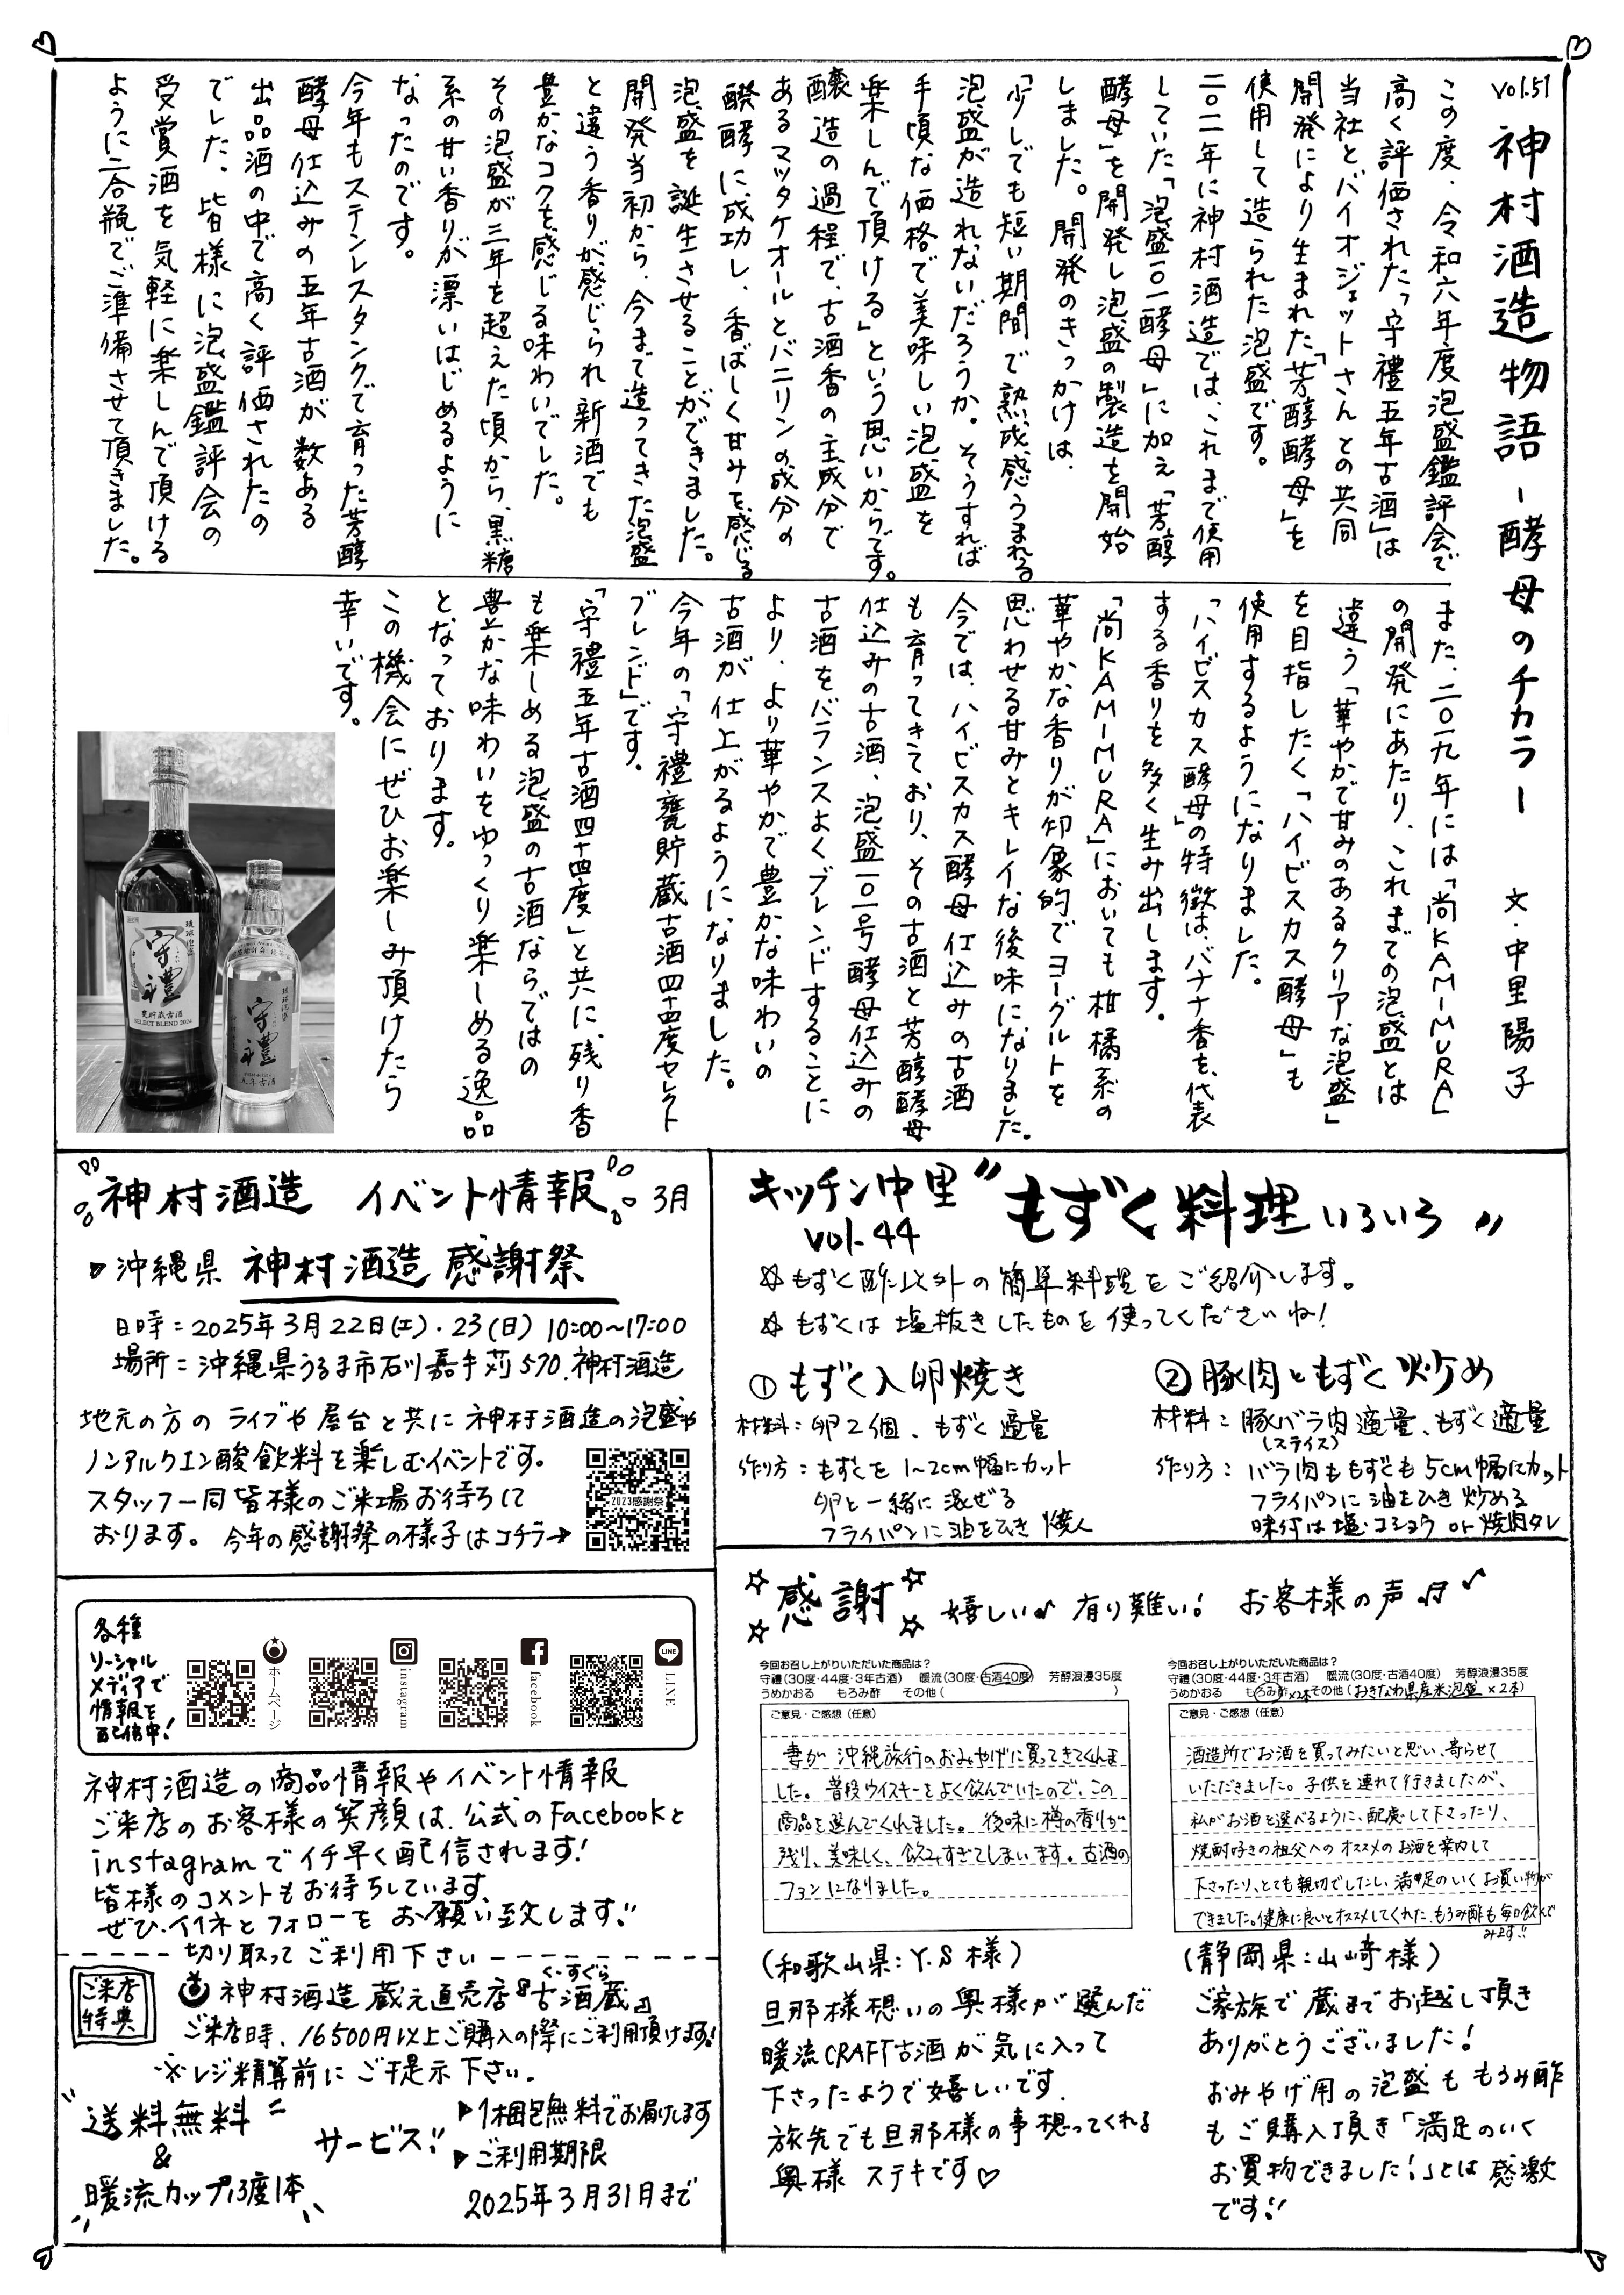 vol.51
神村酒造物語 - 酵母のチカラ -
文・中里陽子
この度、令和六年度泡盛鑑評会で
高く評価された「守禮五年古酒」は
当社とバイオジェットさんとの共同
開発により生まれた「芳醇酵母」を
使用して造られた泡盛です。
二〇一二年に神村酒造では、これまで使用
していた「泡盛一〇一酵母」に加え「芳醇
酵母」を開発し泡盛の製造を開始
しました。開発のきっかけは、
「少しでも短い期間で熟成感うまれる
泡盛が造れないだろうか。そうすれば
手頃な価格で美味しい泡盛を
楽しんで頂ける」という思いからです。
醸造の過程で、古酒香の主成分で
あるマツタケオールとバニリンの成分の
醗酵に成功し、香ばしく甘みを感じる
泡盛を誕生させることができました。
開発当初から、今まで造ってきた泡盛
と違う香りが感じられ新酒でも
豊かなコクを感じる味わいでした。
その泡盛が三年を超えた頃から、黒糖
系の甘い香りが漂いはじめるように
なったのです。
今年もステンレスタンクで育った芳醇
酵母仕込みの五年古酒が数ある
出品酒の中で高く評価されたの
でした。皆様に泡盛鑑評会の
受賞酒を気軽に楽しんで頂ける
ように二合瓶でご準備させて頂きました。
また、二〇一九年には「尚KAMIMURA」
の開発にあたり、これまでの泡盛とは
違う「華やかで甘みのあるクリアな泡盛」
を目指したく「ハイビスカス酵母」も
使用するようになりました。
「ハイビスカス酵母」の特徴は、バナナ香を、代表
する香りを多く生み出します。
「尚KAMIMURA」においても柑橘系の
華やかな香りが印象的でヨーグルトを
思わせる甘みとキレイな後味になりました。
今では、ハイビスカス酵母仕込みの古酒
も育ってきており、その古酒と芳醇酵母
仕込みの古酒、泡盛一〇一号酵母仕込みの
古酒をバランスよくブレンドすることに
より、より華やかで豊かな味わいの
古酒が仕上がるようになりました。
今年の「守禮甕貯蔵古酒四十四度セレクト
ブレンド」です。
「守禮五年古酒四十四度」と共に、残り香
も楽しめる泡盛の古酒ならではの
豊かな味わいをゆっくり楽しめる逸品
となっております。
この機会にぜひお楽しみ頂けたら
幸いです。
琉球泡盛
守禮
甕貯蔵古酒
SELECT BLEND 2024
琉球泡盛
守禮
五年古酒
神村酒造 イベント情報 3月
沖縄県 神村酒造 感謝祭
日時=2025年3月22日(土)・23(日) 10:00~17:00
場所=沖縄県うるま市石川嘉手苅570.神村酒造
地元の方のライブや屋台と共に神村酒造の泡盛や
ノンアルクエン酸飲料を楽しむイベントです。
スタッフ一同皆様のご来場お待ちして
おります。今年の感謝祭の様子はコチラ→
2023感謝祭
キッチン中里 vol.44
"もずく料理いろいろ"
☆もずく酢以外の簡単料理をご紹介します。
☆もずくは塩抜きしたものを使ってくださいね!
①もずく入卵焼き
材料:卵2個、もずく適量
作り方:もずくを1~2cm幅にカット
卵と一緒に混ぜる
フライパンに油をひき焼く
②豚肉ともずく炒め
材料:豚バラ肉適量、もずく適量
(スライス)
作り方:バラ肉ももずくも5cm幅にカット
フライパンに油をひき炒める
味付は塩・コショウ or 焼肉タレ
各種
ソーシャル
メディアで
情報を
配信中!
ホームページ
instagram
facebook
LINE
LINE
神村酒造の商品情報やイベント情報
ご来店のお客様の笑顔は、公式のFacebookと
instagramでイチ早く配信されます!
皆様のコメントもお待ちしています、
ぜひ、イイネとフォローをお願い致します!!
切り取ってご利用下さい
ご来店
特典
神村酒造 蔵元直売店『古酒蔵』
くーすぐら
ご来店時、16500円以上ご購入の際にご利用頂けます!
※レジ精算前にご提示下さい。
送料無料
&
暖流カップ13度1本
サービス!!
▶1梱包無料でお届けします
▶ご利用期限
2025年3月31日まで
☆感謝☆ 嬉しい♪ 有り難い! お客様の声♫♪
今回お召し上がりいただいた商品は?
守禮(30度・44度・3年古酒) 暖流(30度・古酒40度) 芳醇浪漫35度
うめかおる もろみ酢 その他( )
ご意見・ご感想(任意)
妻が沖縄旅行のおみやげに買ってきてくれま
した。普段ウイスキーをよく飲んでいたので、この
商品を選んでくれました。後味に樽の香りが
残り、美味しく、飲みすぎてしまいます。古酒の
ファンになりました。
(和歌山県:Y.S様)
旦那様想いの奥様が選んだ
暖流CRAFT古酒が気に入って
下さったようで嬉しいです。
旅先でも旦那様の事想ってくれる
奥様 ステキです♡
今回お召し上がりいただいた商品は?
守禮(30度・44度・3年古酒) 暖流(30度・古酒40度) 芳醇浪漫35度
うめかおる もろみ酢×2本 その他(おきなわ県産米泡盛×2本)
ご意見・ご感想(任意)
酒造所でお酒を買ってみたいと思い、寄らせて
いただきました。子供を連れて行きましたが、
私がお酒を選べるように、配慮して下さったり、
焼酎好きの祖父へのオススメのお酒を案内して
下さったり、とても親切でしたし、満足のいくお買い物が
できました。健康に良いとオススメしてくれた、もろみ酢も毎日飲んで
みます!!
(静岡県:山崎様)
ご家族で蔵までお越し頂き
ありがとうございました!
おみやげ用の泡盛ももろみ酢
もご購入頂き「満足のいく
お買物できました!」とは感激
です!!